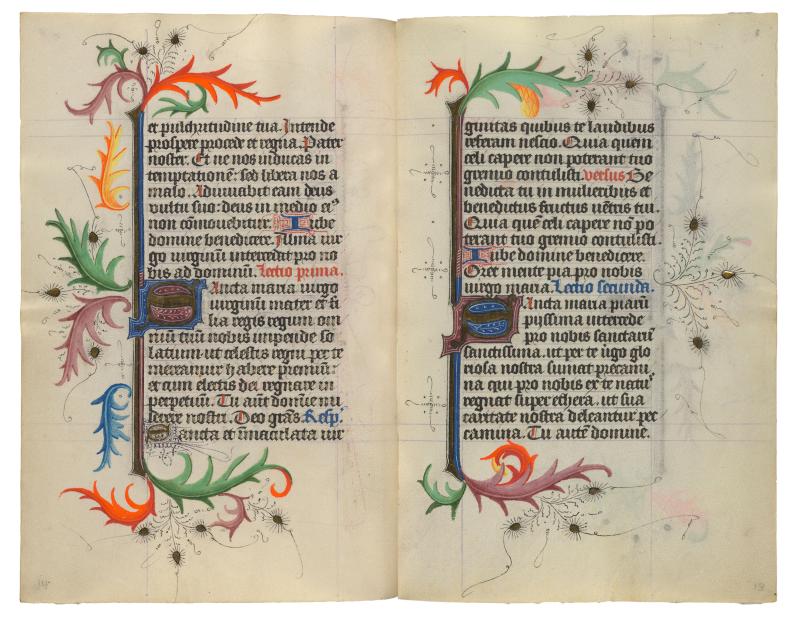 et pulchritudine tua. Intende
prospere procede et regna. Pater
noster. Et ne nos inducas in
temptatione: sed libera nos a
malo. Adiuuabit eam deus
vultu suo: deus in medio ei⁹
non comouebitur. Iube
domine benedicere. Alma uir
go uirginū intercedit pro no
bis ad dominū. Lectio prima.
Sancta maria uirgo
uirginum mater et fi
lia regis regum om
niū tuū nobis impende so
latium ut celestis regni per te
mereamur habere premiū:
et cum electis dei regnare in
perpetuū. Tu aūt domine mi
serere nostri. Deo grās. Resp̄.
Sancta et īmaculata uir
ginitas quibus te laudibus
referam nescio. Quia quem
celi capere non poterant tuo
gremio contulisti. versus Be
nedicta tu in mulieribus et
benedictus fructus uētris tui.
Quia quē celi capere nō po
terant tuo gremio contulisti.
Iube domine benedicere.
Oret mente pia pro nobis
uirgo maria. Lectio secunda.
Sancta maria piarū
piissima intercede
pro nobis sanctarū
sanctissima. ut per te ūgo glo
riosa nostra sumat precami
na qui pro nobis ex te nat⁹
regnat super ethera. ut sua
caritate nostra deleantur pec
camina. Tu autē domine.